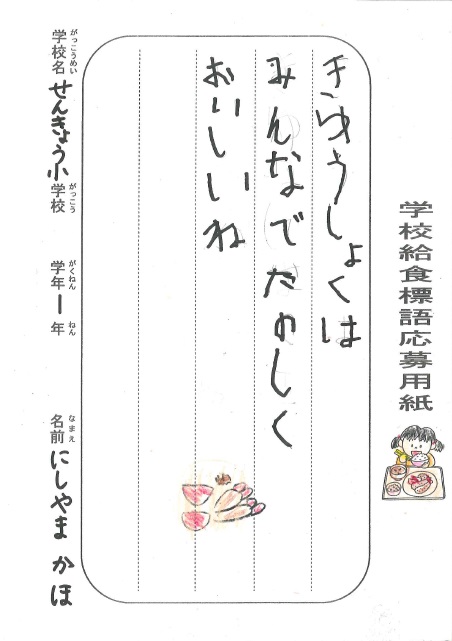 学校給食標語応募用紙
きゅうしょくは
みんなでたのしく
おいしいね
がっこうめい
学校名 せんきょう小学校
がっこう
がくねん
学年 1 年
ねん
なまえ
名前 にしやま かほ